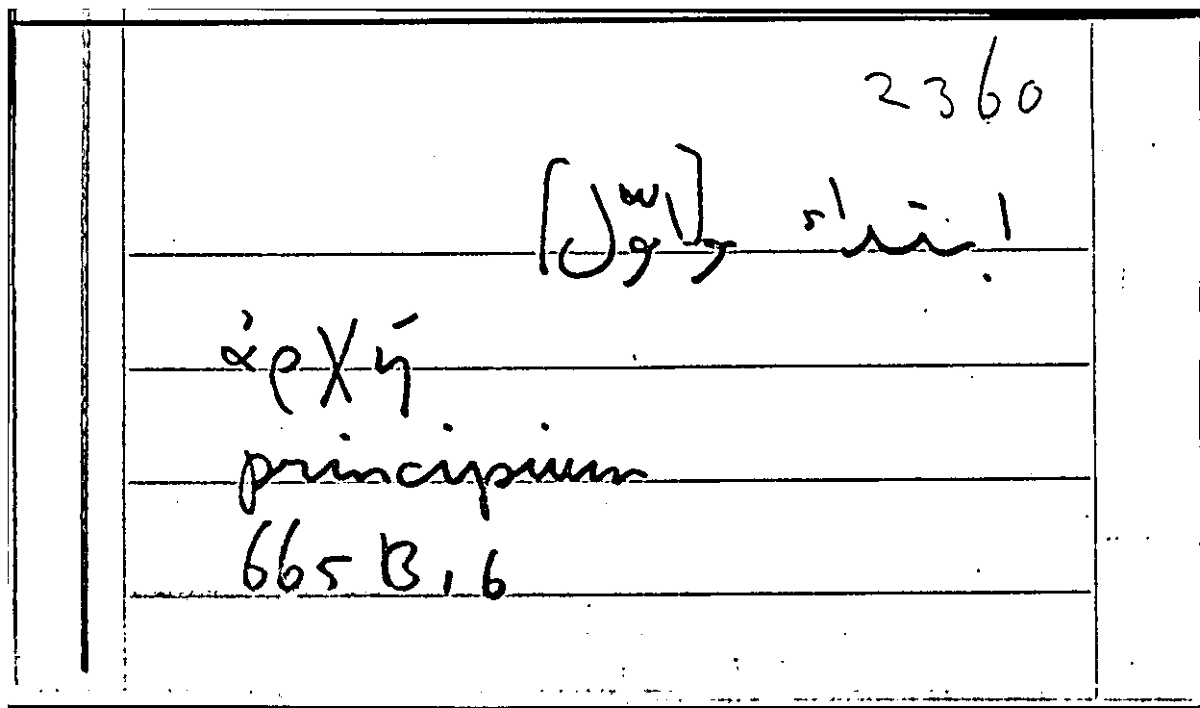 2360
ابتداء
ἀρχή
principium
665 B, 6